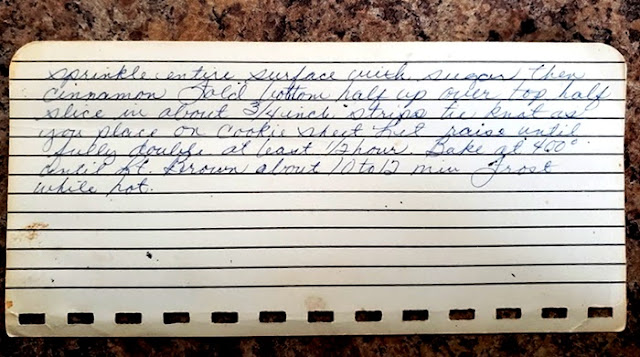 sprinkle entire surface with sugar then
cinnamon Fold bottom half up over top half
slice in about 3/4 inch strips tie knot as
you place on cookie sheet Let raise until
fully double at least 1/2 hour. Bake at 400°
until Lt. Brown about 10 to 12 min Frost
while hot.